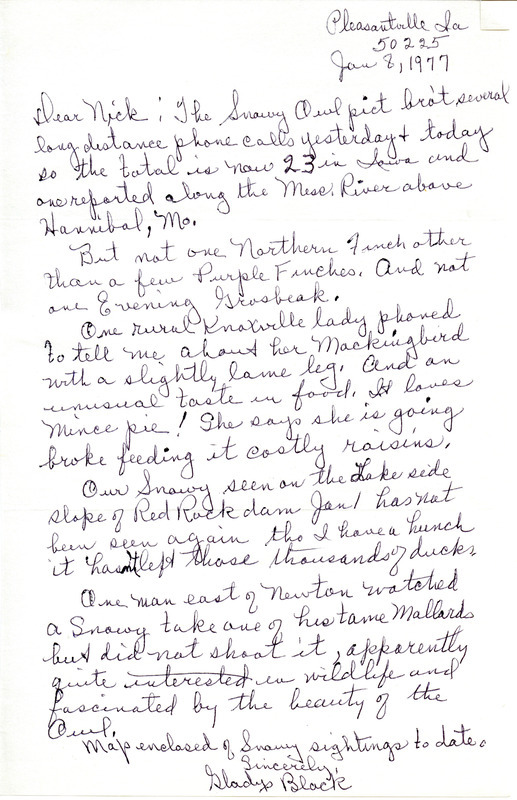 Pleasantville Ia
50225
Jan 8, 1977
Dear Nick: The Snowy Owl pict bro't several
long distance phone calls yesterday & today
so the total is now 23 in Iowa and
one reported along the Miss. River above
Hannibal, Mo.
But not one Northern Finch other
than a few Purple Finches. And not
one Evening Grosbeak.
One rural Knoxville lady phoned
to tell me about her Mockingbird
with a slightly lame leg. And an
unusual taste in food. It loves
Mince pie! She says she is going
broke feeding it costly raisins.
Our Snowy seen on the Lake side
slope of Red Rock dam Jan 1 has not
been seen again tho I have a hunch
it hasn't left those thousands of ducks.
One man east of Newton watched
a Snowy take one of his tame Mallards
but did not shoot it, apparently
quite interested in wildlife and
fascinated by the beauty of the
Owl.
Map enclosed of Snowy sightings to date.
Sincerely,
Gladys Black